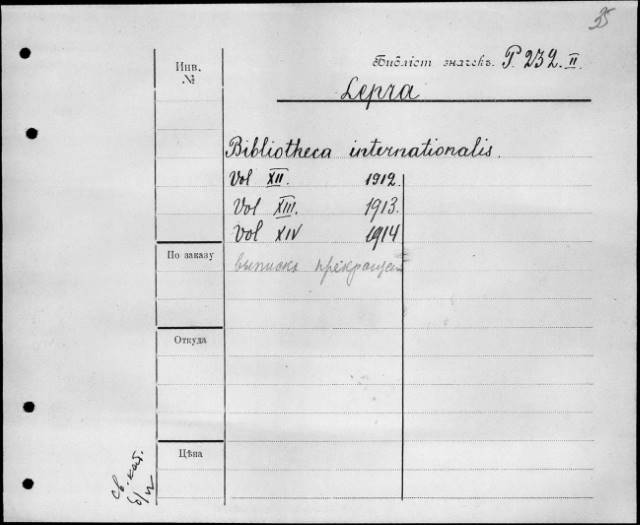 35
Инв.
№
Библіот значекъ. P 232. II
Lepra
Bibliotheca internationalis.
Vol XII. 1912.
Vol XIII. 1913.
Vol XIV 1914
выписка прекращена
По заказу
Откуда
Цѣна
св. кат.